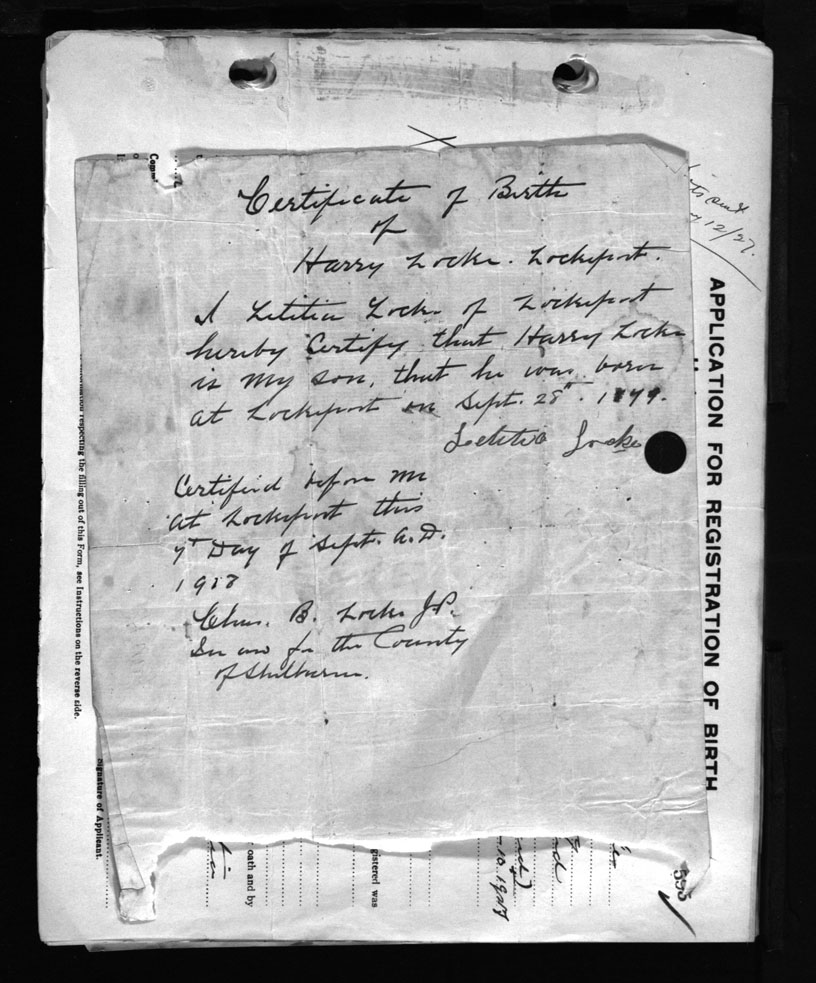 Certificate of Birth
of
Harry Locke. Lockeport.
I Letitia Locke of Lockeport
hereby Certify that Harry Locke
is my son, that he was born
at Lockeport on Sept. 28th. 1899.
Letitia Locke
Certified before me
at Lockeport this
7th Day of Sept. A.D.
1918
Chas. B. Locke J.P.
In and for the County
of Shelburne.
12/27.
APPLICATION FOR REGISTRATION OF BIRTH
respecting the filling out of this Form, see Instructions on the reverse side.
Signature of Applicant.
oath and by
gistered was
10. 1927
595